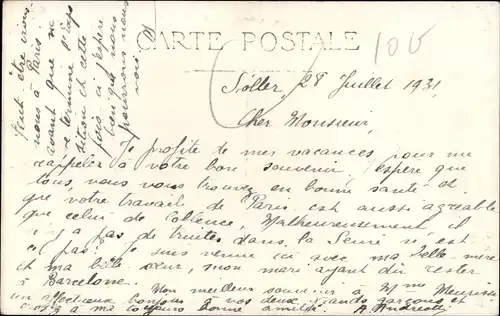 CARTE POSTALE
100
Sóller, 28 Juillet 1931
Cher Monsieur,
Je profite de mes vacances pour me
rappeler à votre bon souvenir. espère que
tous, vous vous trouvez en bonne santé et
que votre travail de Paris est aussi agréable
que celui de Valence, Malheureusement, il
n'y a pas de truites dans la Seine n'est
ce pas? Je suis venue ici avec ma belle-mère
et ma belle sœur, mon mari ayant dû rester
à Barcelone. Mon meilleur souvenir à Mme
un affectueux bonjour à vos deux grands garçons et
à ma toujours bonne amitié. A. Andreotti
Peut-être irons
nous à Paris
avant que ne
se termine l'expo
sition et cette
fois j'espère
bien que nous
pourrons nous
voir